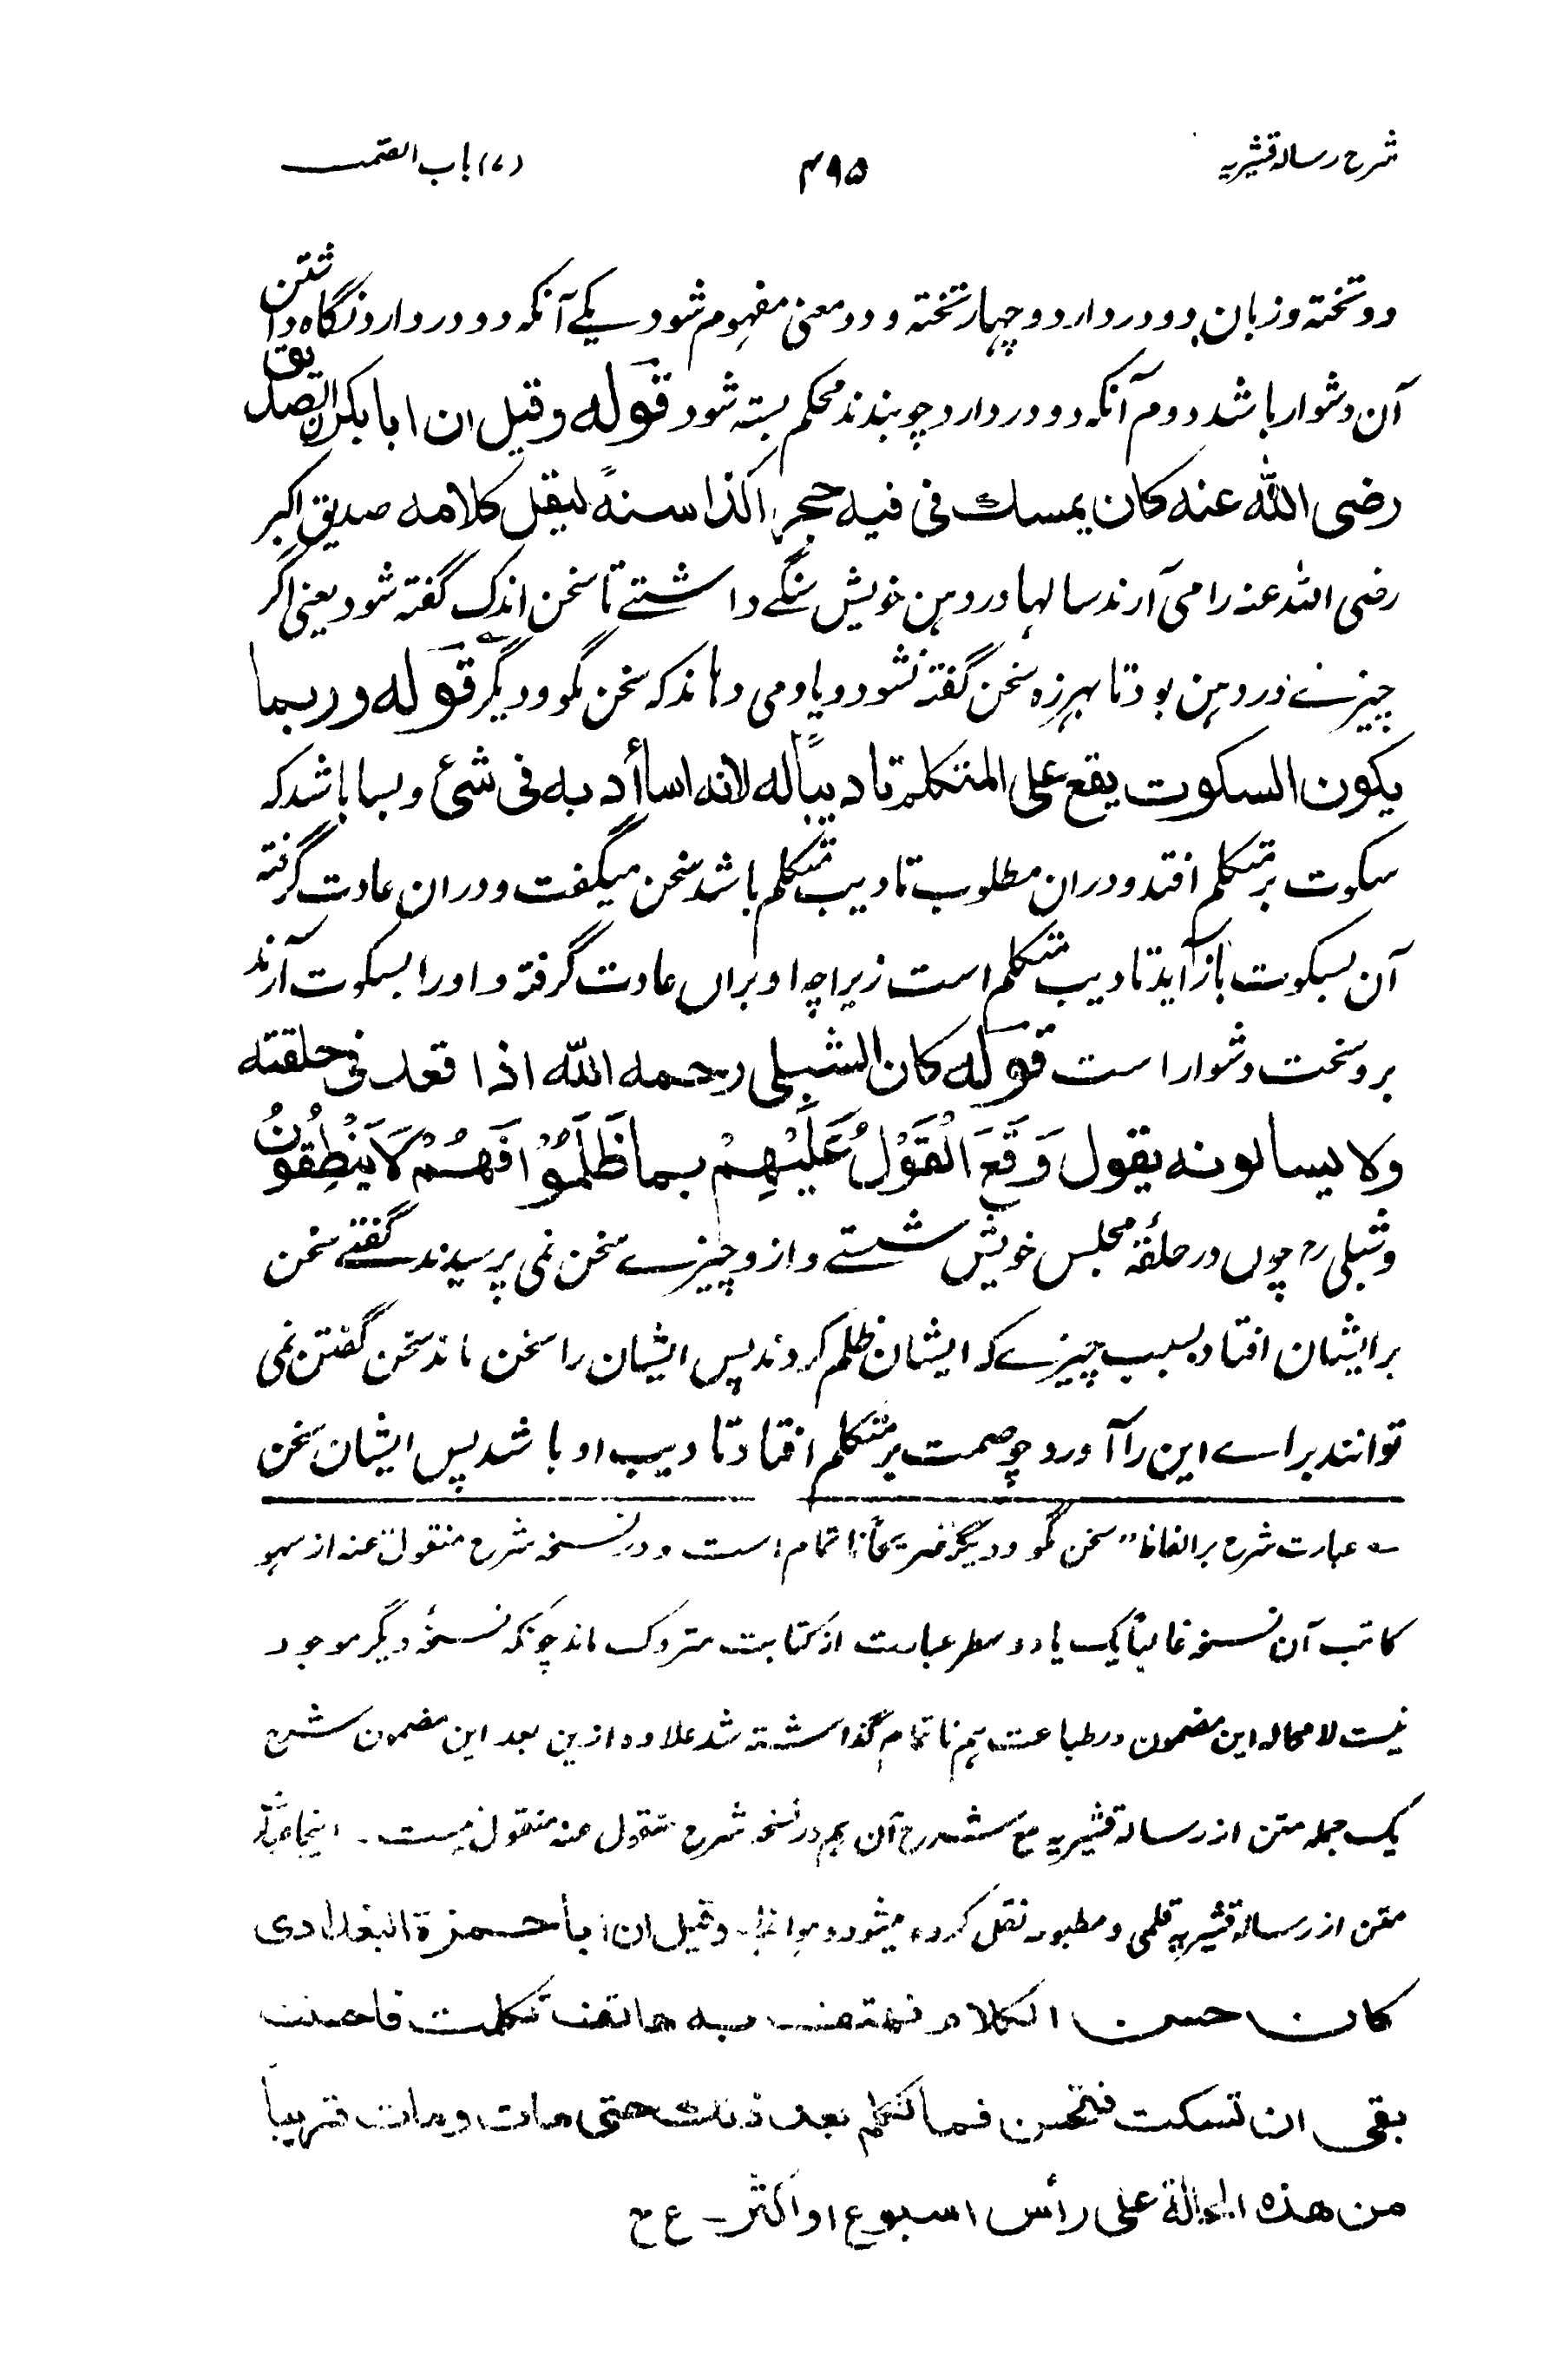 شرح رسالہ قشیریہ
۴۹۵
(۷) باب الصمت
دو تختہ و زبان دو در دارد و چہار تختہ و دو معنی مفہوم شود یکے آنکہ دو در دارد نگاہ داشتن
آن دشوار باشد دوم آنکہ دو در دارد چو بندند محکم بستہ شود قوله وقیل ان ابا بکرن الصدیق
رضی الله عنه کان یمسك فی فیه حجرا کذا سنةً لیقل کلامه صدیق اکبر
رضی اللہ عنہ را می آرند سالہا در دہن خویش سنگے داشتے تا سخن اندک گفتہ شود یعنی اگر
چیزے در دہن بود تا بہرزہ سخن گفتہ نشود و یاد می دہاند کہ سخن گو و دیگر قوله وربما
یکون السکوت یقع علی المتکلم تادیباً له لانه اساأدبه فی شئ و بسا باشد کہ
سکوت بر متکلم افتد و دران مطلوب تادیب متکلم باشد سخن میگفت و دران عادت گرفتہ
آن بسکوت باز آید تادیب متکلم است زیراچہ او بران عادت گرفتہ و اورا بسکوت آرند
برو سخت دشوار است قوله کان الشبلی رحمه الله اذا قعد فی حلقته
ولا یسالونه یقول وَقَعَ الْقَوْلُ عَلَیْهِمْ بِما ظَلَمُوْا فَهُمْ لَا یَنْطِقُوْنَ
و شبلی رح چوں در حلقۂ مجلس خویش نشستے و ازو چیزے سخن نمی پرسیدند گفتے سخن
بر ایشان افتاد بسبب چیزے کہ ایشان ظلم کردند پس ایشان را سخن نماند سخن گفتن نمی
توانند براے این را آورد چو صمت بر متکلم افتاد تادیب او باشد پس ایشان سخن
؎ عبارت شرح بر الفاظ "سخن گو و دیگر" صریحاً ناتمام است و در نسخہ شرح منقول عنہ از سہو
کاتب آن نسخہ غالباً یک یا دو سطر عبارت از کتابت متروک ماند چونکہ نسخۂ دیگر موجود
نیست لا محالہ این مضمون در طباعت ہم ناتمام گذاشتہ شد علاوہ ازین بعد این مضمون شرح
یک جملہ متن از رسالہ قشیریہ مع شرح آن ہم در نسخہ شرح منقول عنہ منقول نیست۔ اینجا
متن از رسالہ قشیریہ قلمی و مطبوعہ نقل کردہ میشود و ہوا ہذا۔ وقیل ان ابا حمزة البغدادی
کان حسن الکلام فهتف به هاتف تکلمت فاحسنت
بقی ان تسکت فتحسن فما تکلم بعد ذلك حتی مات ومات قریباً
من هذه الحالة علی رأس اسبوع او اکثر۔ ع ح